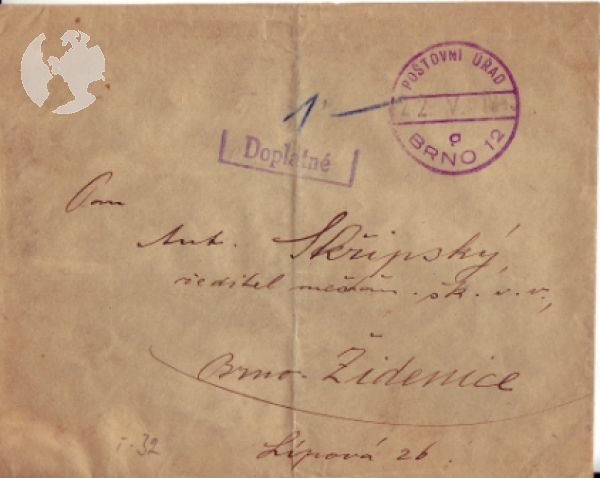 POŠTOVNÍ ÚŘAD
22. V.
g
BRNO 12
1'-
Doplatné
Pan
Ant. Skřipský,
ředitel měšťan. šk. v. v.,
Brno-Židenice
Lípová 26.
i. 32